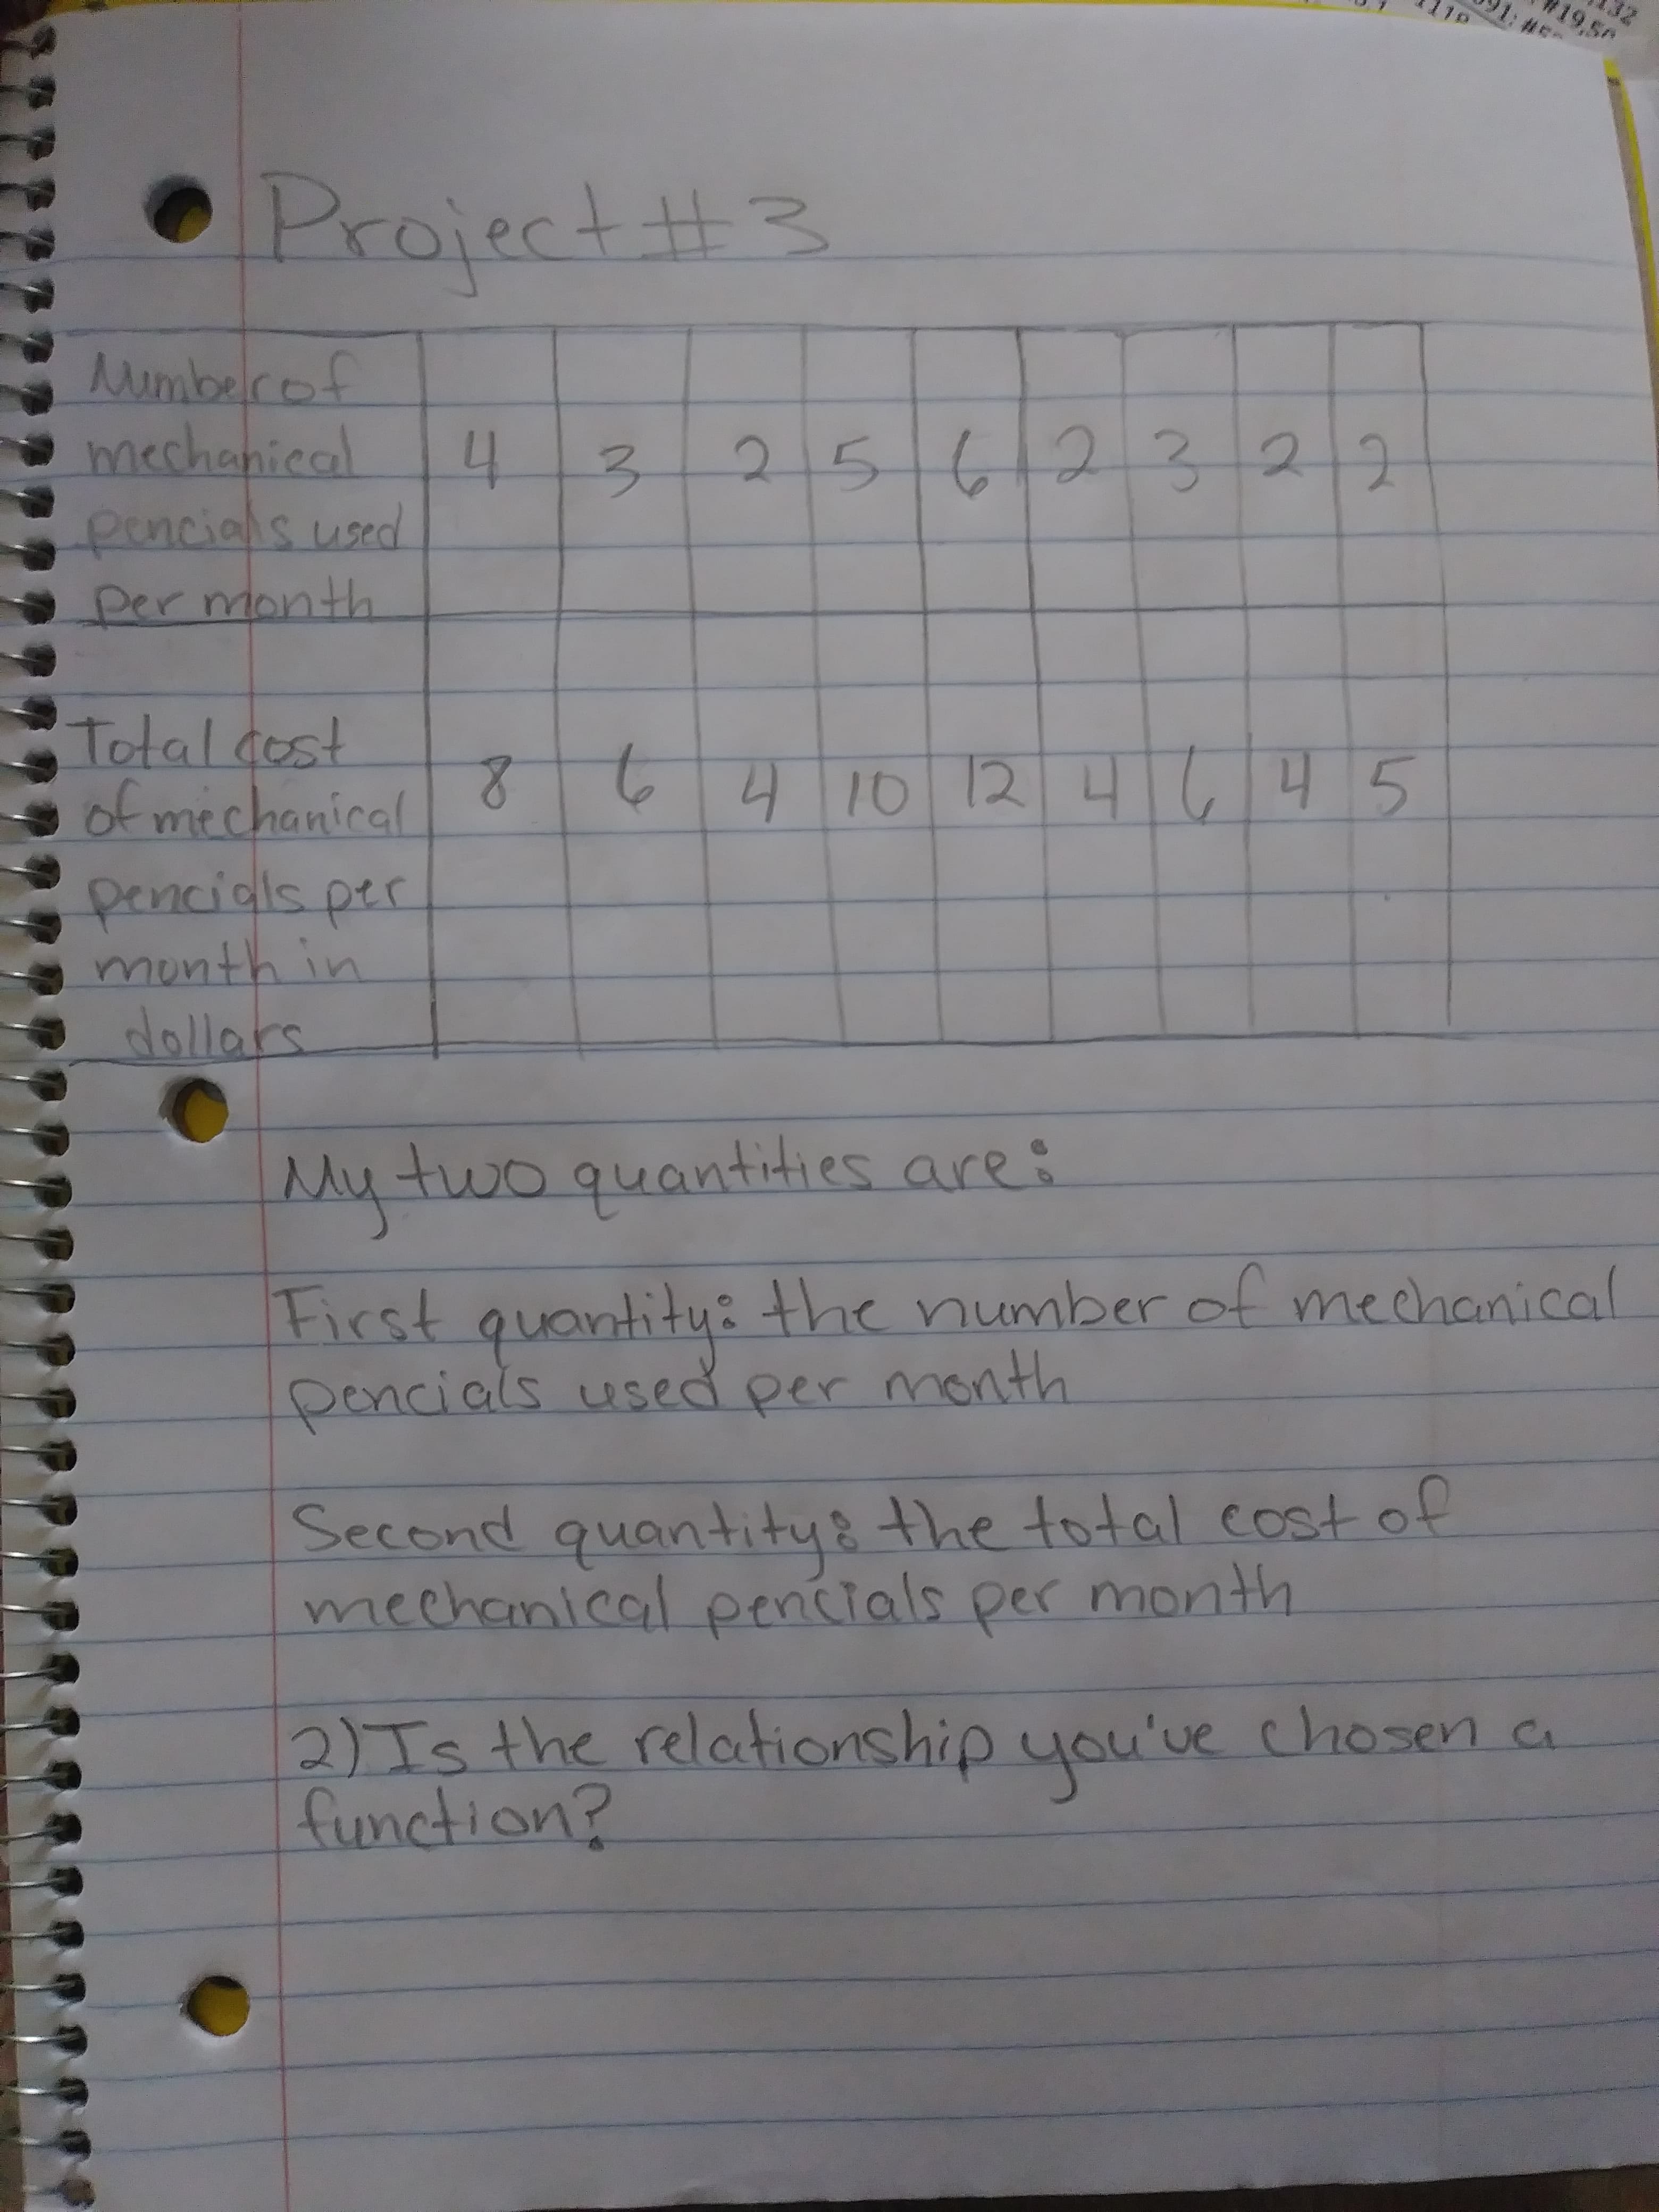 132
#19,50
91; #5
1119
Project #3
Number of
mechanical
pencials used
per month
4 3 2 5 6 2 3 2 2
Total cost
of mechanical
pencials per
month in
dollars
8 6 4 10 12 4 6 4 5
My two quantities are:
First quantity: the number of mechanical
pencials used per month
Second quantity: the total cost of
mechanical pencials per month
2) Is the relationship you've chosen a
function?